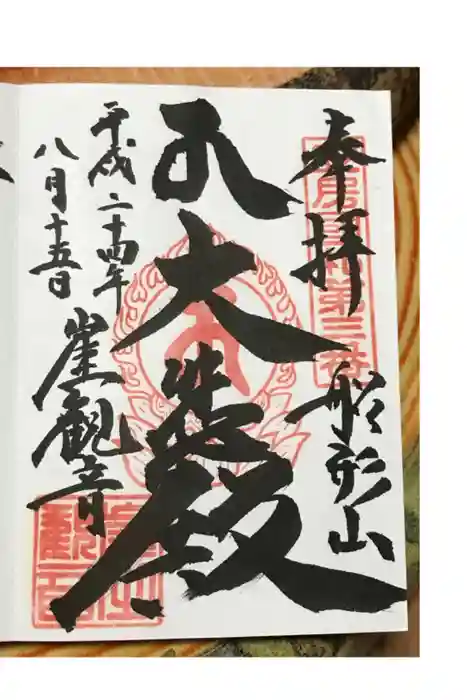 奉拝
安房国札第三番
船形山
大悲殿
平成二十四年
八月十五日
崖観音